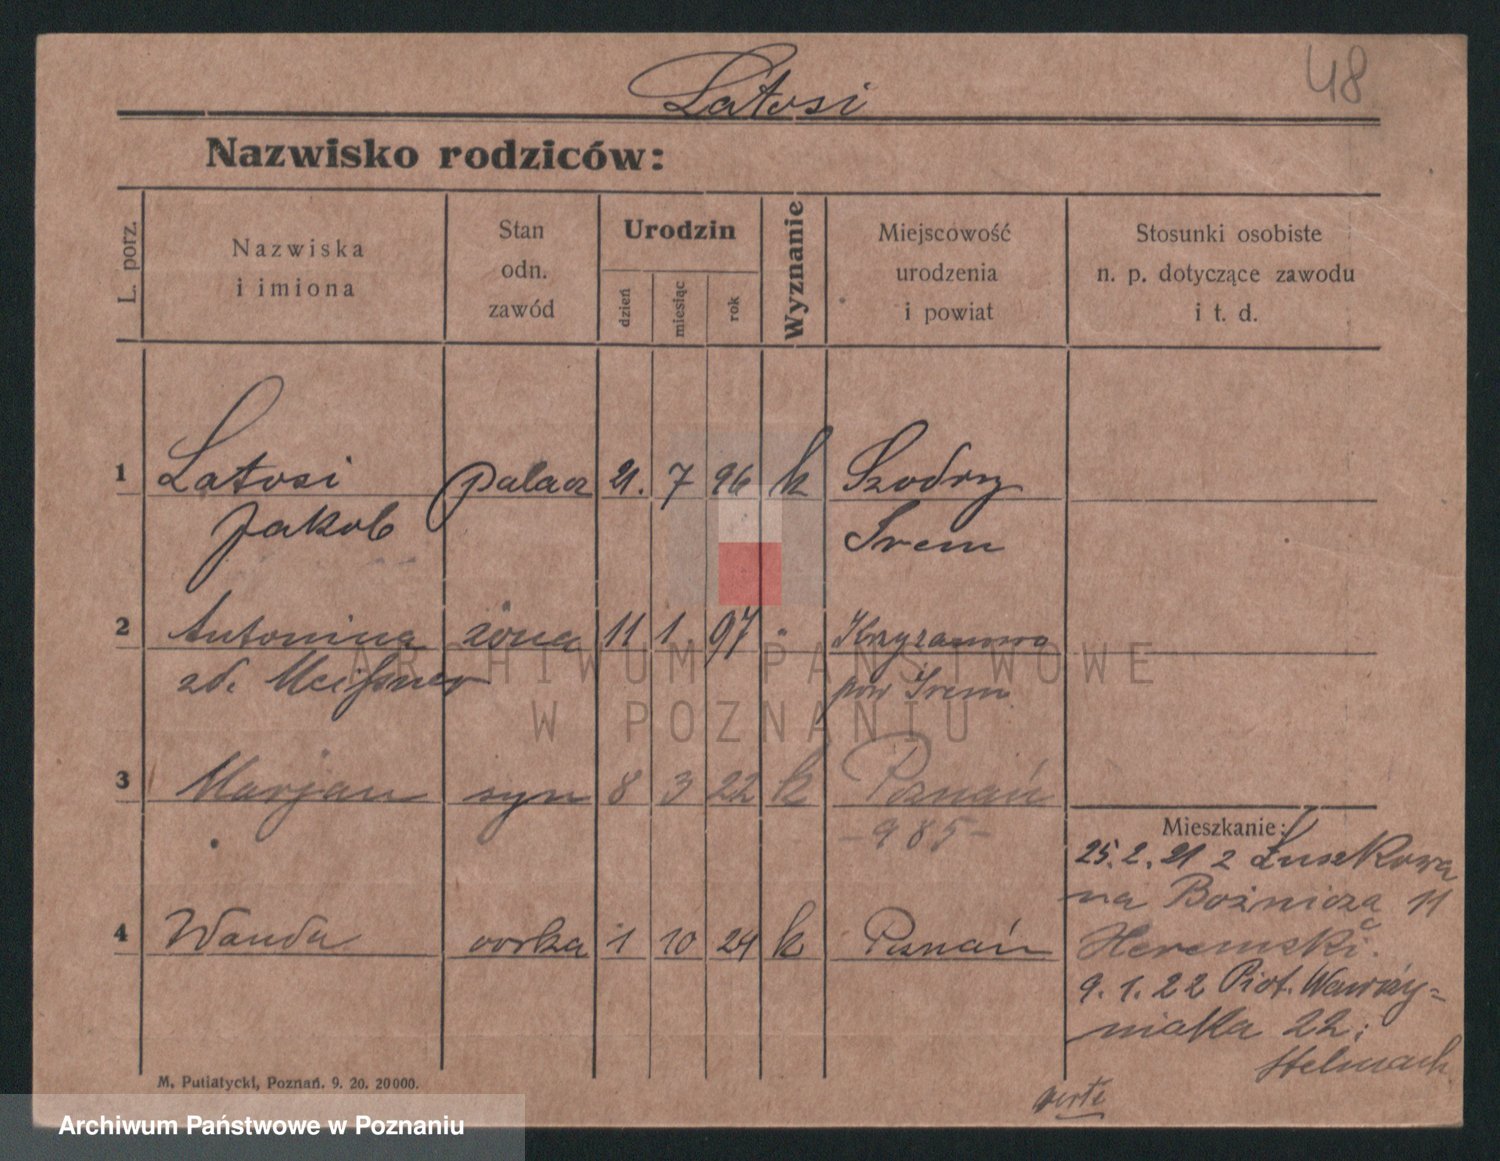 48
Latosi
Nazwisko rodziców:
L. porz.
Nazwiska
i imiona
Stan
odn.
zawód
Urodzin
dzień
miesiąc
rok
Wyznanie
Miejscowość
urodzenia
i powiat
Stosunki osobiste
n. p. dotyczące zawodu
i t. d.
1 Latosi palacz 21. 7 96 k Szodry
Jakob Srem
2 Antonina żona 11 1 97 " Krzyzanowo
zd. Meißner pow Srem
3 Marjan syn 8 3 22 k Poznań
- 985 -
Mieszkanie:
25. 2. 21 z Łuszkowa
na Bożniczą 11
4 Wanda córka 1 10 24 k Poznań
9. 1. 22 Piot. Wawrzy=
niaka 22:
Stelmach
verte
M. Putiatycki, Poznań. 9. 20. 20000.
ARCHIWUM PAŃSTWOWE
W POZNANIU
Archiwum Państwowe w Poznaniu